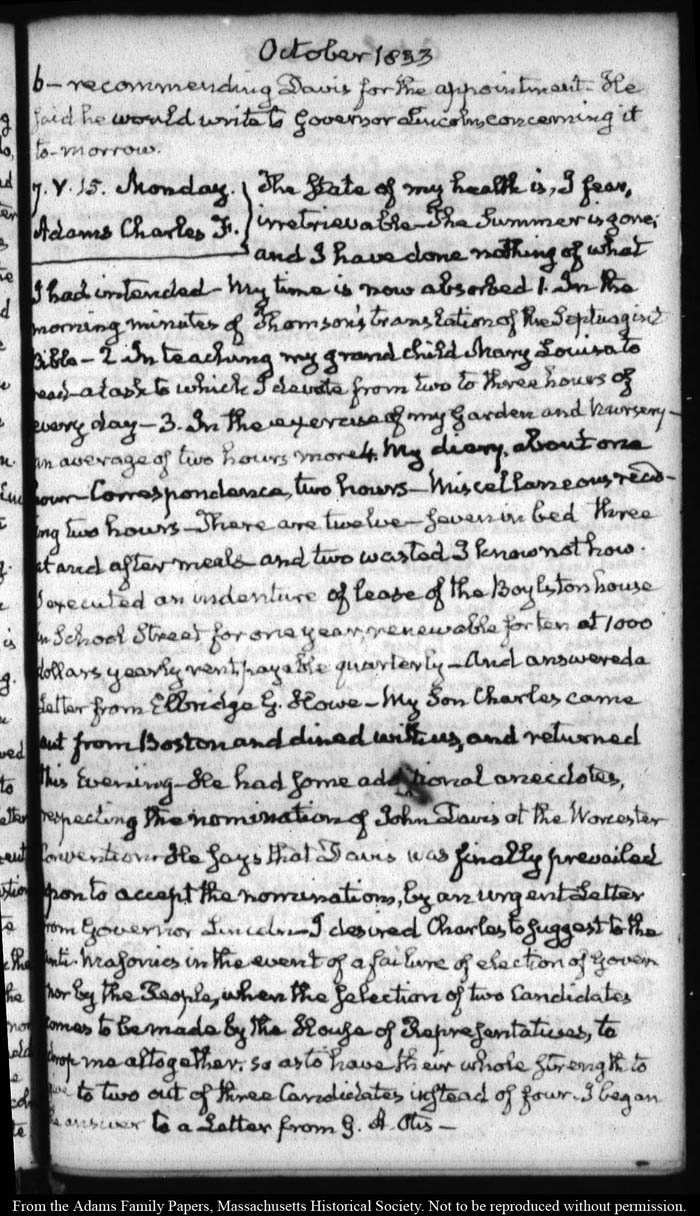 October 1833
6 – recommending Davis for the appointment. He
said he would write to Governor Lincoln concerning it
to-morrow.
7. V. 15. Monday. The state of my health is, I fear,
Adams Charles F. irretrievable – The Summer is gone;
and I have done nothing of what
I had intended – My time is now absorbed 1. In the
morning minutes of Thomson's translation of the Septuagint
Bible – 2 In teaching my grand child Mary Louisa to
read – a task to which I devote from two to three hours of
every day – 3. In the exercise of my Garden and Nursery –
an average of two hours more 4. My diary, about one
hour – Correspondence, two hours – Miscellaneous read-
ing two hours – There are twelve – seven in bed three
at and after meals – and two wasted I know not how.
I executed an indenture of lease of the Boylston house
in School Street for one year, renewable for ten at 1000
dollars yearly rent, payable quarterly – And answered a
Letter from Elbridge G. Howe – My Son Charles came
out from Boston and dined with us, and returned
this Evening – He had some additional anecdotes,
respecting the nomination of John Davis at the Worcester
Convention. He says that Davis was finally prevailed
upon to accept the nomination, by an urgent Letter
from Governor Lincoln – I desired Charles to suggest to the
Anti-Masonics in the event of a failure of election of Gover
nor by the People, when the selection of two Candidates
comes to be made by the House of Representatives, to
drop me altogether, so as to have their whole strength to
give to two out of three Candidates instead of four. I began
the answer to a Letter from G. A. Otis –
From the Adams Family Papers, Massachusetts Historical Society. Not to be reproduced without permission.